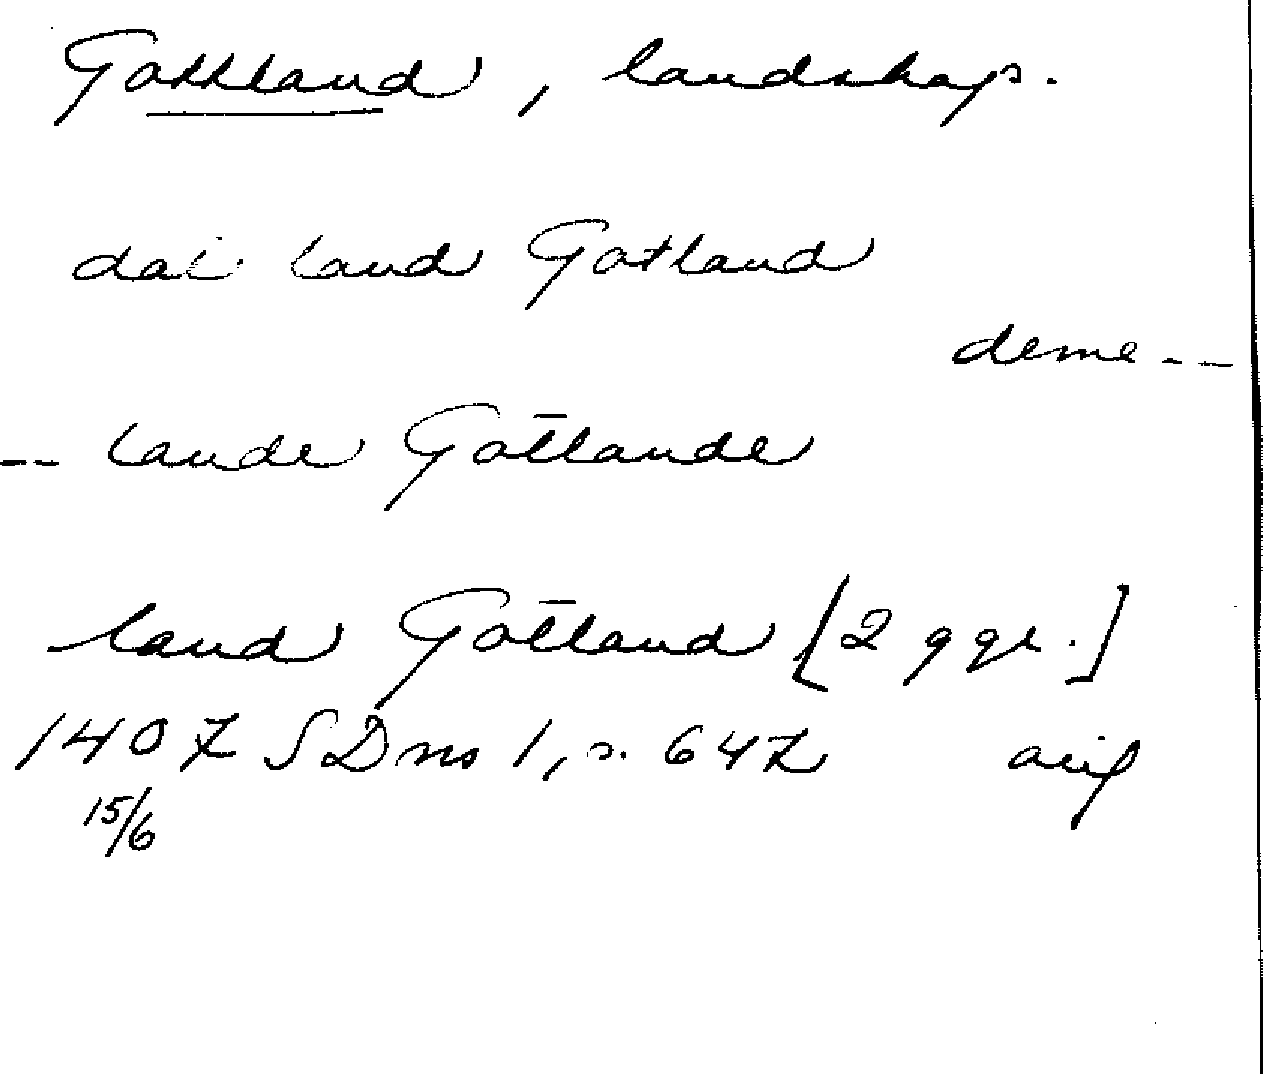 Gottland, landskap.
dat land Gotland
deme --
-- lande Gotlande
land Gotland [2 ggr.]
1407 SDns 1, s. 647 avs
15/6